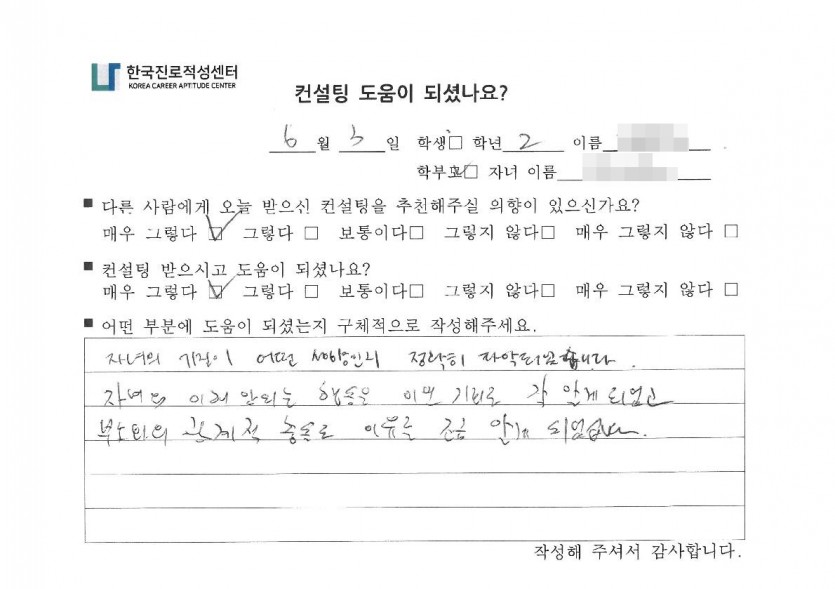 한국진로적성센터
KOREA CAREER APTITUDE CENTER
컨설팅 도움이 되셨나요?
6 월 3 일 학생□ 학년 2 이름
학부모☑ 자녀 이름
■ 다른 사람에게 오늘 받으신 컨설팅을 추천해주실 의향이 있으신가요?
매우 그렇다 ☑ 그렇다 □ 보통이다□ 그렇지 않다□ 매우 그렇지 않다 □
■ 컨설팅 받으시고 도움이 되셨나요?
매우 그렇다 ☑ 그렇다 □ 보통이다□ 그렇지 않다□ 매우 그렇지 않다 □
■ 어떤 부분에 도움이 되셨는지 구체적으로 작성해주세요.
자녀의 기질이 어떤 성향인지 정확히 파악되었습니다.
자녀의 이해 안되는 행동을 이번 기회로 잘 알게 되었고
부모와의 관계적 충돌도 이유를 조금 알게 되었습니다.
작성해 주셔서 감사합니다.